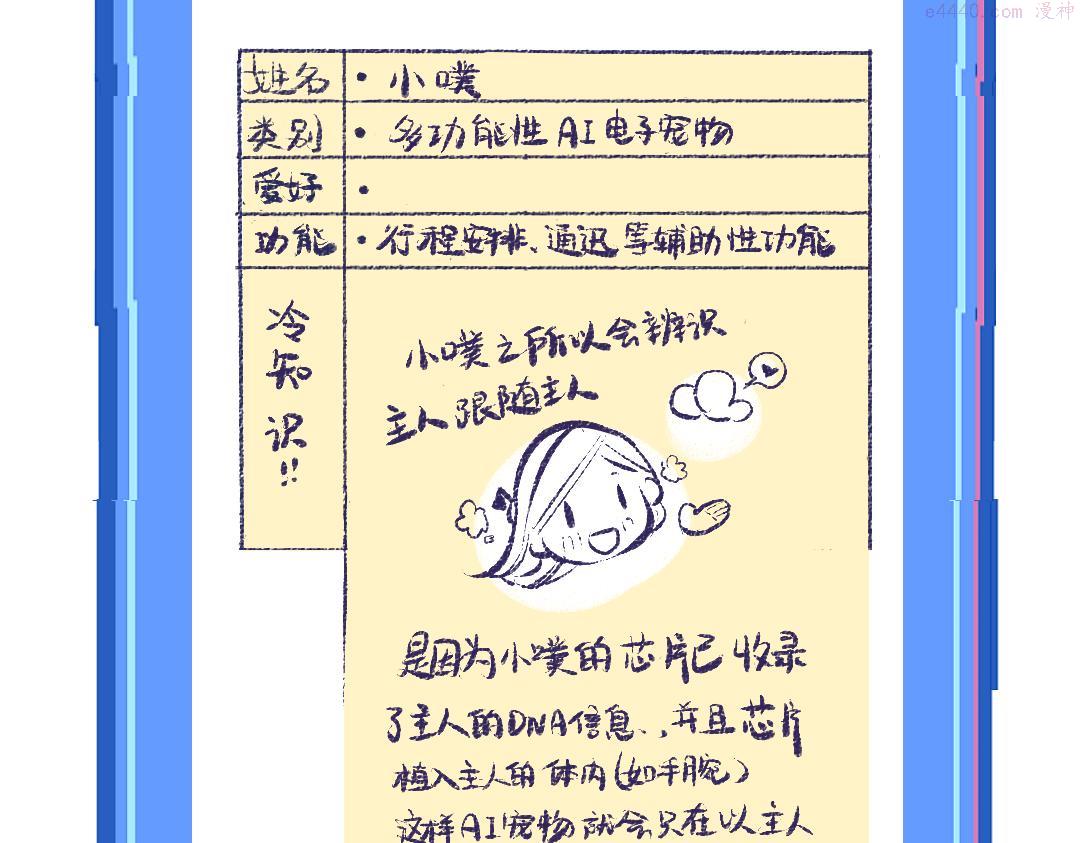 e4440.com 漫神
姓名 · 小噗
类别 · 多功能性AI电子宠物
爱好 ·
功能 · 行程安排、通迅等辅助性功能
冷知识!!
小噗之所以会辨识
主人跟随主人
是因为小噗的芯片已收录
了主人的DNA信息、,并且芯片
植入主人的体内(如手腕)
这样AI宠物就会只在以主人